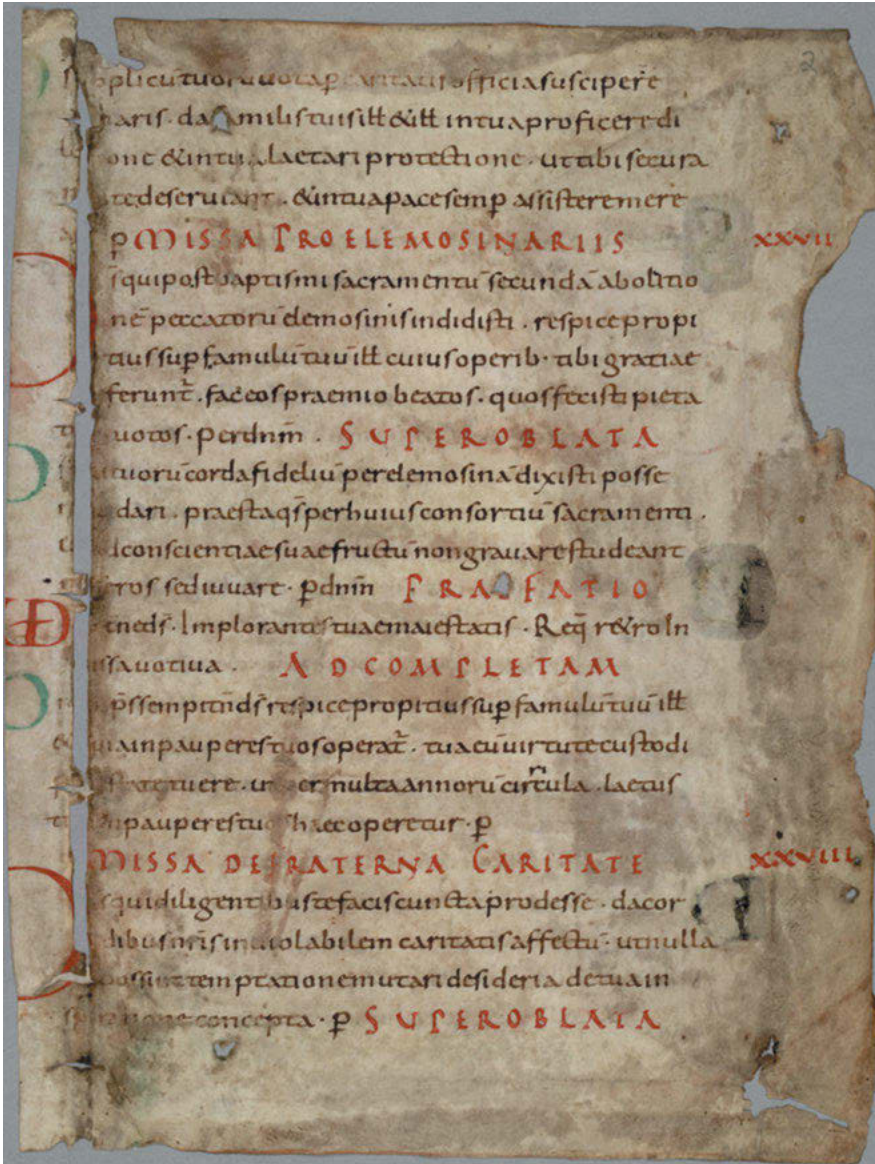 plicu tuoru uota p caritatis officia suscipere
naris · da familis tuis ill & ill in tua proficere di
one & in tua laetari protectione · ut tibi secura
te deseruiant · & in tua pace semp assistere mere
p MISSA PRO ELEMOSINARIIS XXVII
s qui post baptismi sacramentū secundā abolitio
nē peccatorū elemosinis indidisti · respice propi
tius sup famulū tuū ill cuius operib· tibi gratiae
ferunt · fac eos praemio beatos · quos fecisti pieta
uotos · Per dnm · SUPER OBLATA
tuorū corda fideliū per elemosinā dixisti posse
dari · praesta qs per huius consortiū sacramenti ·
conscientiae suae fructū non grauare studeant
ros sed iuuare · p dnm PRAEFATIO
ne ds · Implorantes tuae maiestatis · Req retro In
ssa uotiua · AD COMPLETAM
ps semp itn ds respice propitius sup famulū tuū ill
in pauperes tuos operat · tua eū uirtute custodi
ere · ut per multa annorū circula · laetus
pauperes tuos haec operetur · p
MISSA DE FRATERNA CARITATE XXVIII
s qui diligentibus te facis cuncta prodesse · da cor
dibus nris inuiolabilem caritatis affectū · ut nulla
possint temptatione mutari desideria de tua in
concepta · p SUPER OBLATA